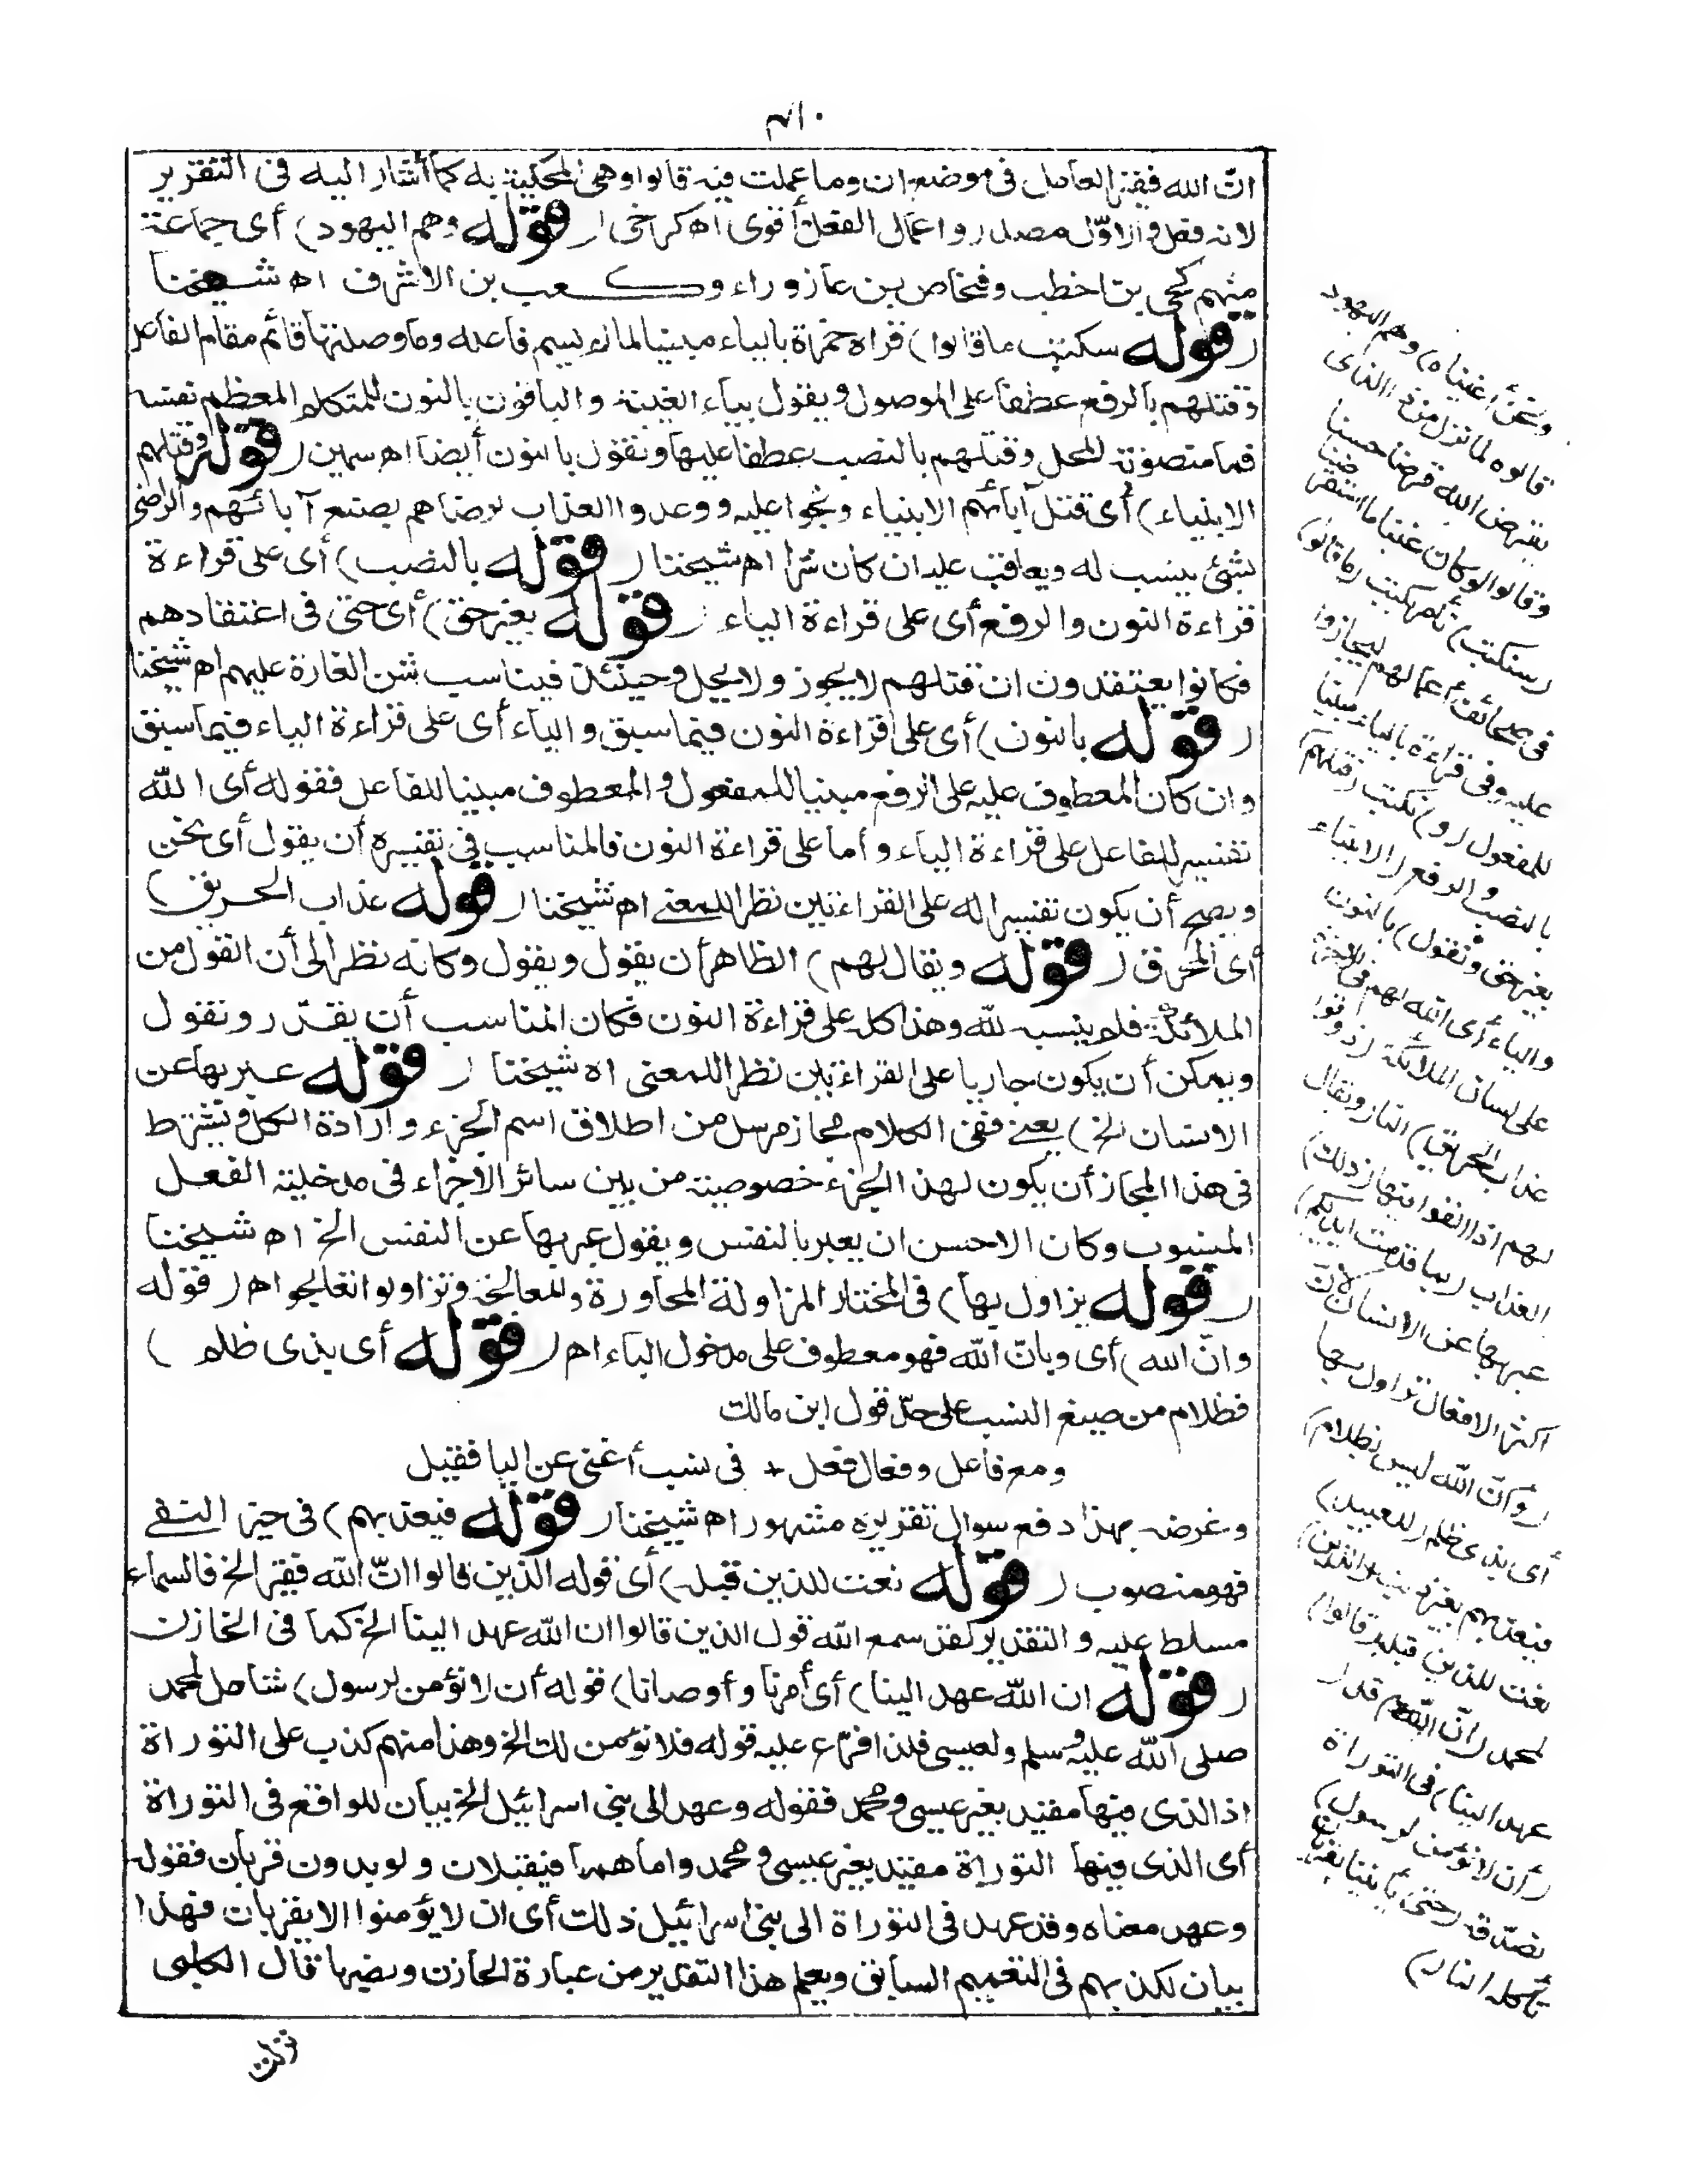 ٤١٠
انّ الله فقير العامل فى موضع ان وما عملت فيه قالوا وهى المحكية به كما أشار اليه فى التقرير
لانه فعل والاوّل مصدر واعمال الفعل أقوى اه كرخى (قوله وهم اليهود) أى جماعة
منهم كحيى بن اخطب وفنحاص بن عازوراء وكعب بن الاشرف اه شيخنا
(قوله سنكتب ما قالوا) قراه حمزة بالياء مبنيا لما لم يسم فاعله وما وصلتها قائم مقام الفاعل
وقتلهم بالرفع عطفا على الموصول ويقول بياء الغيبة والباقون بالنون للمتكلم المعظم نفسه
فما منصوبة المحل وقتلهم بالنصب عطفا عليها ونقول بالنون أيضا اه سمين (قوله وقتلهم
الانبياء) أى قتل آبائهم الانبياء وبخوا عليه ووعدوا العذاب لرضاهم بصنع آبائهم والراضى
بشئ ينسب له ويعاقب عليه ان كان شرا اه شيخنا (قوله بالنصب) أى على قراءة
قراءة النون والرفع أى على قراءة الياء (قوله بغير حق) أى حتى فى اعتقادهم
فكانوا يعتقدون ان قتلهم لا يجوز ولا يحل وحينئذ فيناسب شن الغارة عليهم اه شيخنا
(قوله بالنون) أى على قراءة النون فيما سبق والياء أى على قراءة الياء فيما سبق
وان كان المعطوف عليه على الرفع مبنيا للمفعول والمعطوف مبنيا للفاعل فقوله أى الله
تفسير للفاعل على قراءة الياء وأما على قراءة النون فالمناسب فى تفسيره أن يقول أى نحن
ويصح أن يكون تفسيرا له على القراءتين نظرا للمعنى اه شيخنا (قوله عذاب الحريق)
أى المحرق (قوله ويقال لهم) الظاهر أن يقول ويقول وكانه نظر الى أن القول من
الملائكة فلم ينسب لله وهذا كله على قراءة النون فكان المناسب أن يقدّر ونقول
ويمكن أن يكون جاريا على القراءتين نظرا للمعنى اه شيخنا (قوله عبر بها عن
الانسان الخ) يعنى ففى الكلام مجاز مرسل من اطلاق اسم الجزء وارادة الكل ويشترط
فى هذا المجاز أن يكون لهذا الجزء خصوصية من بين سائر الاجزاء فى مدخلية الفعل
المنسوب وكان الاحسن ان يعبر بالنفس ويقول عبر بها عن النفس الخ اه شيخنا
(قوله يزاول بها) فى المختار المزاولة المحاورة والمعالجة وتزاولوا تعالجوا اه (قوله
وانّ الله) أى وبانّ الله فهو معطوف على مدخول الباء اه (قوله أى بذى ظلم)
فظلام من صيغ النسب على حدّ قول ابن مالك
ومع فاعل وفعال فعل + فى نسب أغنى عن اليا فقبل
وغرضه بهذا دفع سوال تقريره مشهور اه شيخنا (قوله فيعذبهم) فى حيز النفى
فهو منصوب (قوله نعت للذين قبله) أى قوله الذين قالوا انّ الله فقير الخ فالسماء
مسلط عليه والتقدير لقد سمع الله قول الذين قالوا ان الله عهد الينا الخ كما فى الخازن
(قوله ان الله عهد الينا) أى أمرنا وأوصانا) قوله أن لا نؤمن لرسول) شامل لمحمد
صلى الله عليه وسلم ولعيسى فلذا فرّع عليه قوله فلا نؤمن لك الخ وهذا منهم كذب على التوراة
اذ الذى فيها مقيد بغير عيسى ومحمد فقوله وعهد الى بنى اسرائيل الخ بيان للواقع فى التوراة
أى الذى فيها التوراة مقيد بغير عيسى ومحمد واما هما فيقبلان ولو بدون قربان فقوله
وعهد معناه وقد عهد فى التوراة الى بنى اسرائيل ذلك أى ان لا يؤمنوا الا بقربان فهذا
بيان لكذبهم فى التعميم السابق ويعلم هذا التقدير من عبارة الخازن ونصها قال الكلبى
ونحن أغنياء) وهم اليهود
قالوه لما نزل من ذا الذى
يقرض الله قرضا حسنا
وقالوا لو كان غنيا ما استقرضنا
(سنكتب) نأمر بكتب (ما قالوا)
فى صحائف أعمالهم ليجازوا
عليه وفى قراءة بالياء مبنيا
للمفعول (و) نكتب (قتلهم)
بالنصب والرفع (الانبياء
بغير حق ونقول) بالنون
والياء أى الله لهم فى الآخرة
على لسان الملائكة (ذوقوا
عذاب الحريق) النار ويقال
لهم اذا القوا فيها (ذلك)
العذاب (بما قدمت ايديكم)
عبر بها عن الانسان لانّ
اكثر الافعال تزاول بها
(وانّ الله ليس بظلام)
أى بذى ظلم (للعبيد)
فيعذبهم بغير ذنب (الذين)
نعت للذين قبله (قالوا)
لمحمد (انّ الله) قد (
عهد الينا) فى التوراة
(أن لا نؤمن لرسول)
نصدقه (حتى يأتينا بقربان
تأكله النار)